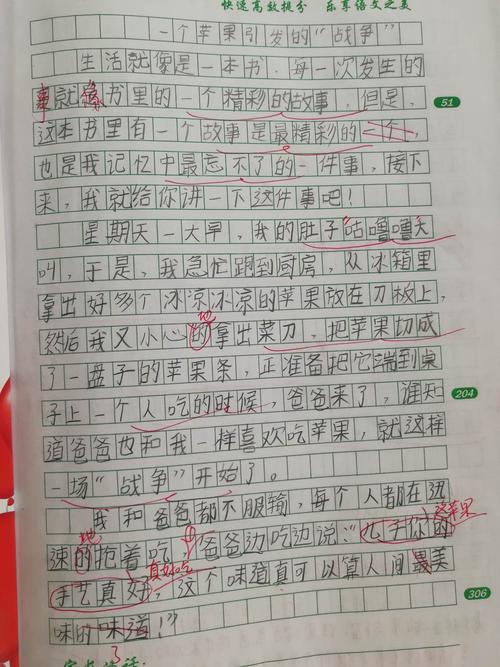 快速高效提分 乐享语文之美
一个苹果引发的“战争”
生活就像是一本书,每一次发生的
事就像书里的一个精彩的故事,但是,
51
这本书里有一个故事是最精彩的一个,
也是我记忆中最忘不了的一件事,接下
来,我就给你讲一下这件事吧!
星期天一大早,我的肚子“咕噜噜”大
叫,于是,我急忙跑到厨房,从冰箱里
拿出好多个冰凉冰凉的苹果放在刀板上,
地
然后我又小心的拿出菜刀,把苹果切成
了一盘子的苹果条,正准备把它端到桌
子上一个人吃的时候,爸爸来了,谁知
204
道爸爸也和我一样喜欢吃苹果,就这样
一场“战争”开始了。
我和爸爸都不服输,每个人都在迅
地
苹果
速的抱着吃,爸爸边吃边说:“儿子你的
真好吃
手艺真好,这个味道真可以算人间最美
306
味的味道!”